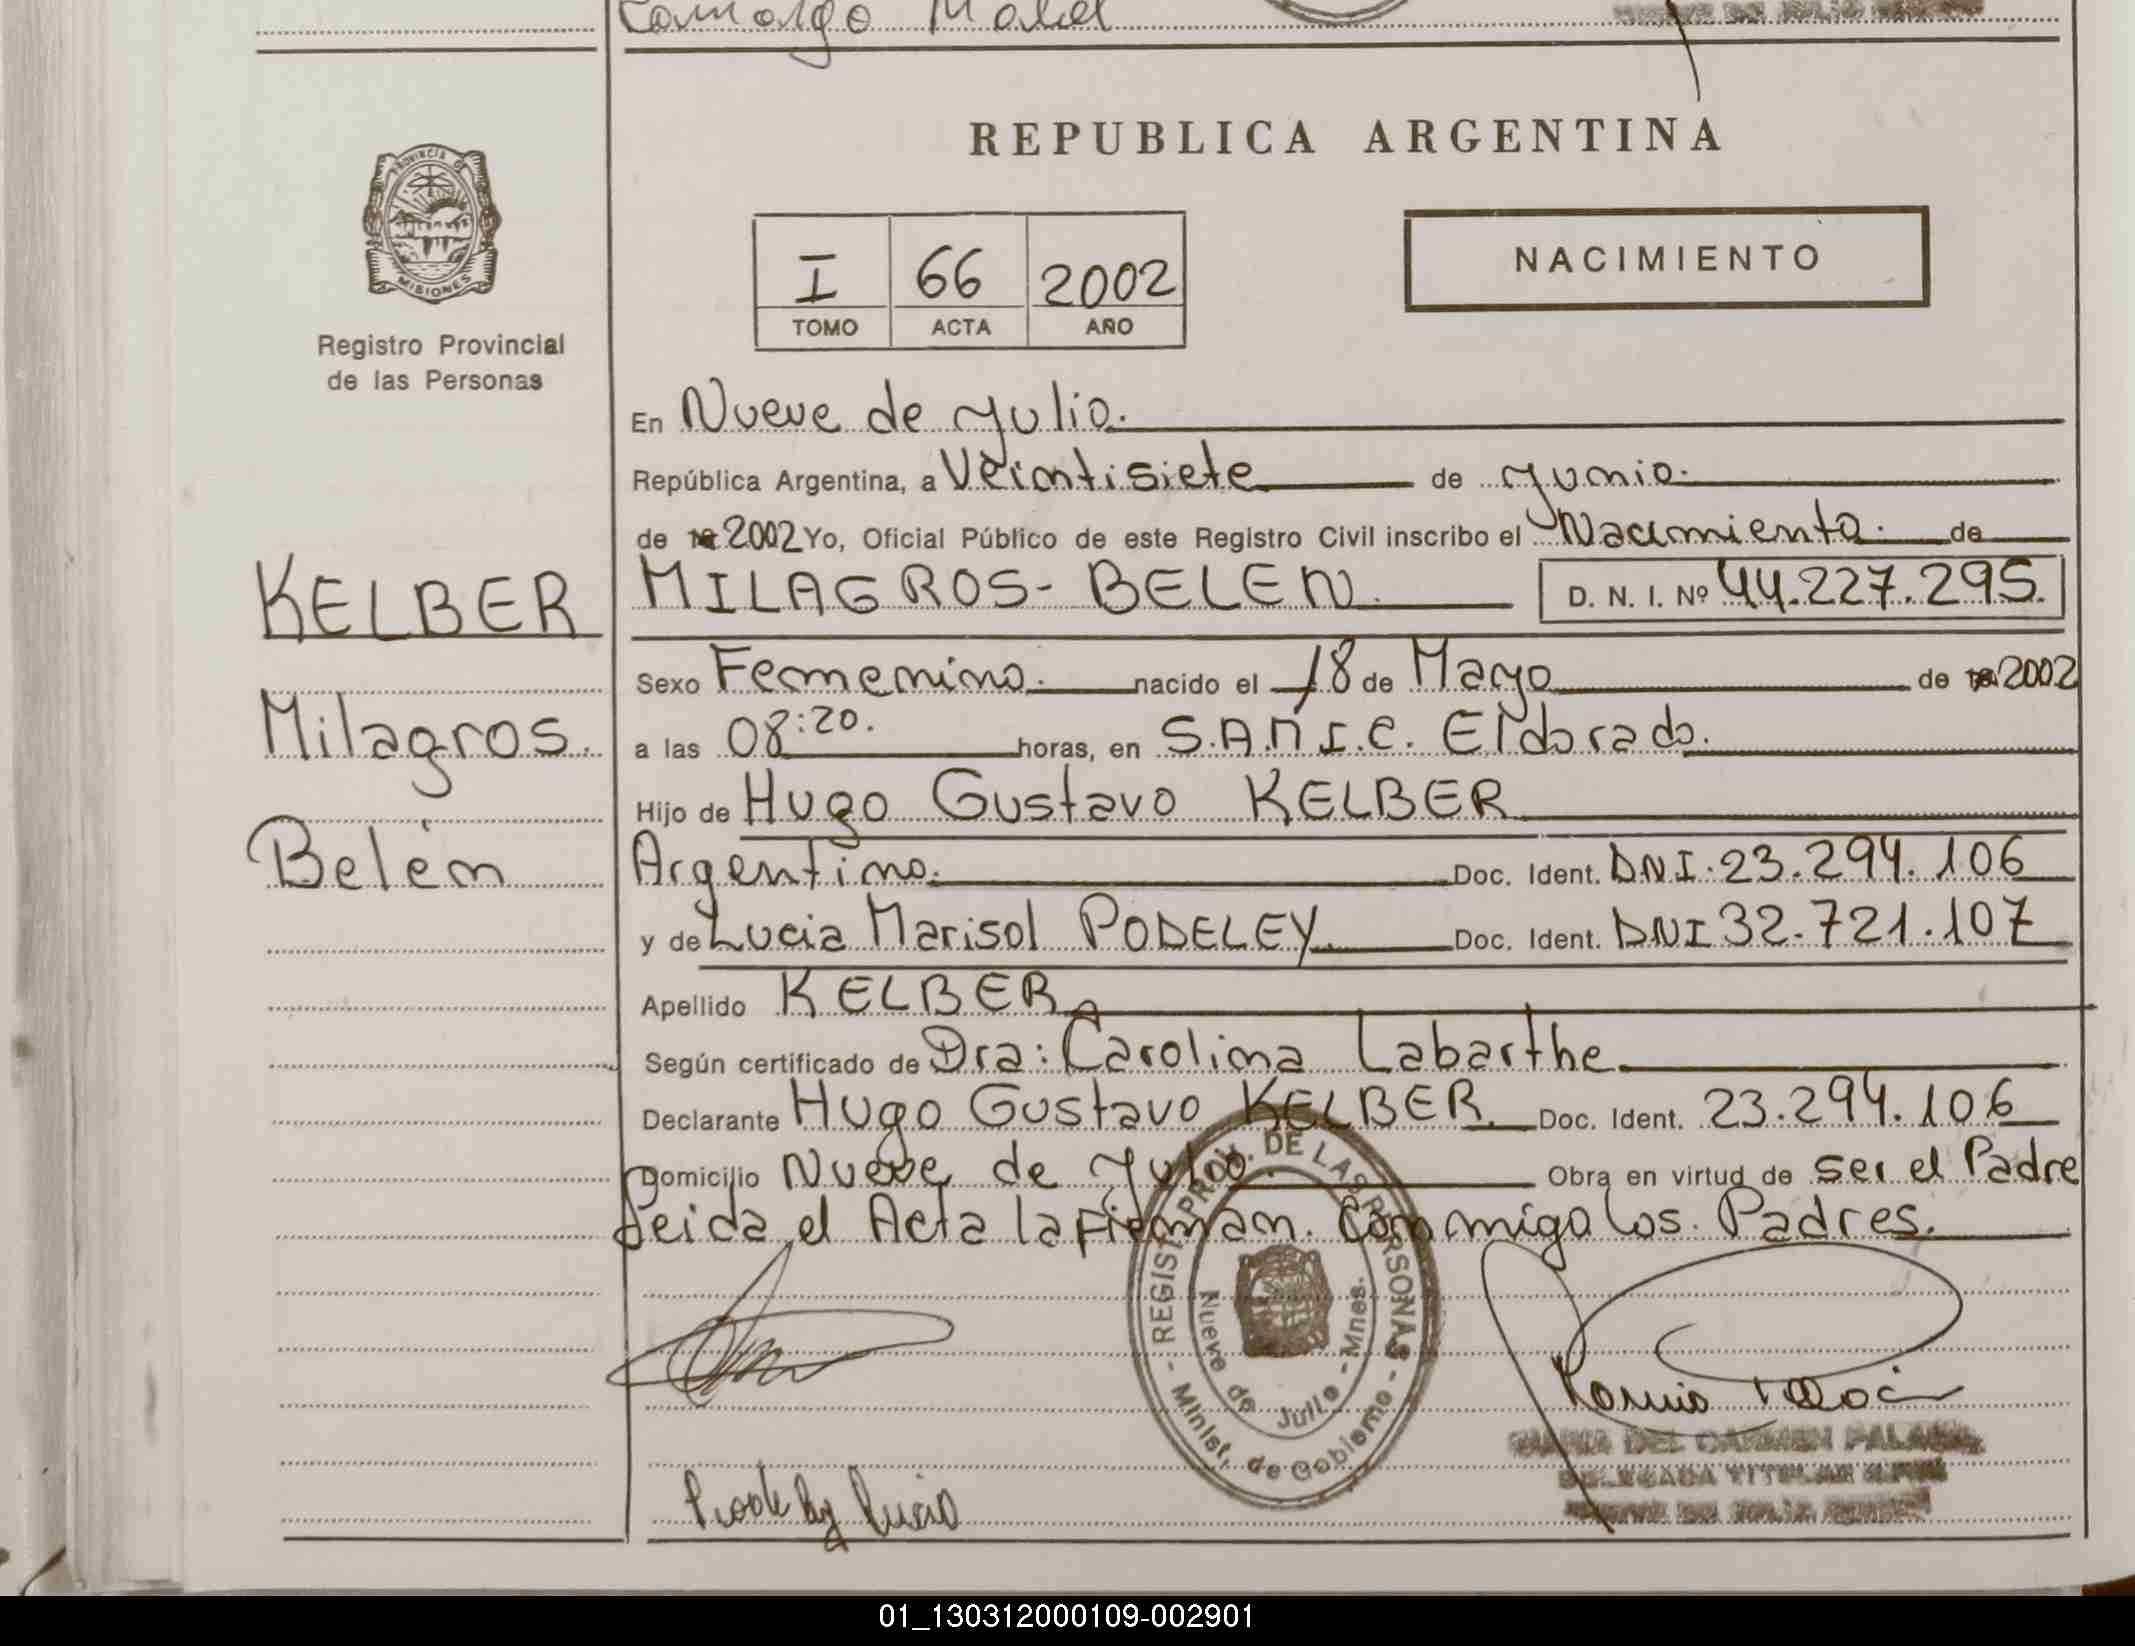 Camargo Mabel
REPUBLICA ARGENTINA
PROVINCIA DE
MISIONES
I 66 2002
TOMO ACTA AÑO
NACIMIENTO
Registro Provincial
de las Personas
En Nueve de Julio.
República Argentina, a Veintisiete de Junio.
de 2002 Yo, Oficial Público de este Registro Civil inscribo el Nacimiento. de
KELBER
MILAGROS - BELEN. D. N. I. Nº 44.227.295.
Sexo Femenino. nacido el 18 de Mayo de 2002
Milagros.
a las 08:20. horas, en S.A.M.I.C. Eldorado.
Hijo de Hugo Gustavo KELBER
Belén
Argentino. Doc. Ident. DNI. 23.294.106
y de Lucia Marisol PODELEY. Doc. Ident. DNI 32.721.107
Apellido KELBER
Según certificado de Dra: Carolina Labarthe
Declarante Hugo Gustavo KELBER. Doc. Ident. 23.294.106
Domicilio Nueve de Julio. Obra en virtud de ser el Padre
Leida el Acta la Firman. Conmigo los. Padres.
REGIST. PROV. DE LAS PERSONAS
Nueve de Julio - Mnes.
- Minist. de Gobierno -
MARIA DEL CARMEN
DELEGADA TITULAR
NUEVE DE JULIO
Lucia
01_130312000109-002901